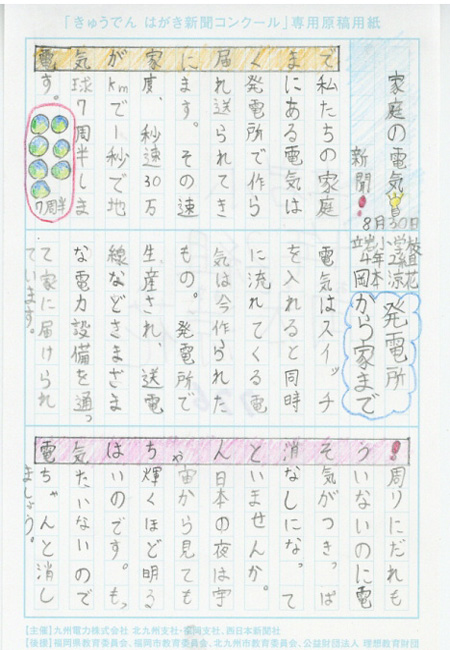 「きゅうでん はがき新聞コンクール」専用原稿用紙
家庭の電気
新聞!
8月30日
立岩小学校
電気が家に届くまで
私たちの家庭
にある電気は
発電所で作ら
れ送られてき
ます。その速
度、秒速30万
kmで1秒で地
球7周半しま
す。
7周半
発電所
から家まで
電気はスイッチ
を入れると同時
に流れてくる電
気は今作られた
もの。発電所で
生産され、送電
線などさまざま
な電力設備を通っ
て家に届けられ
ています。
電気はちゃんと消そう!
周りにだれも
いないのに電
気がつきっぱ
なしになって
いませんか。
日本の夜は宇
宙から見ても
輝くほど明る
いのです。もっ
たいないので
ちゃんと消し
ましょう。
【主催】九州電力株式会社 北九州支社・福岡支社、西日本新聞社
【後援】福岡県教育委員会、福岡市教育委員会、北九州市教育委員会、公益財団法人 理想教育財団